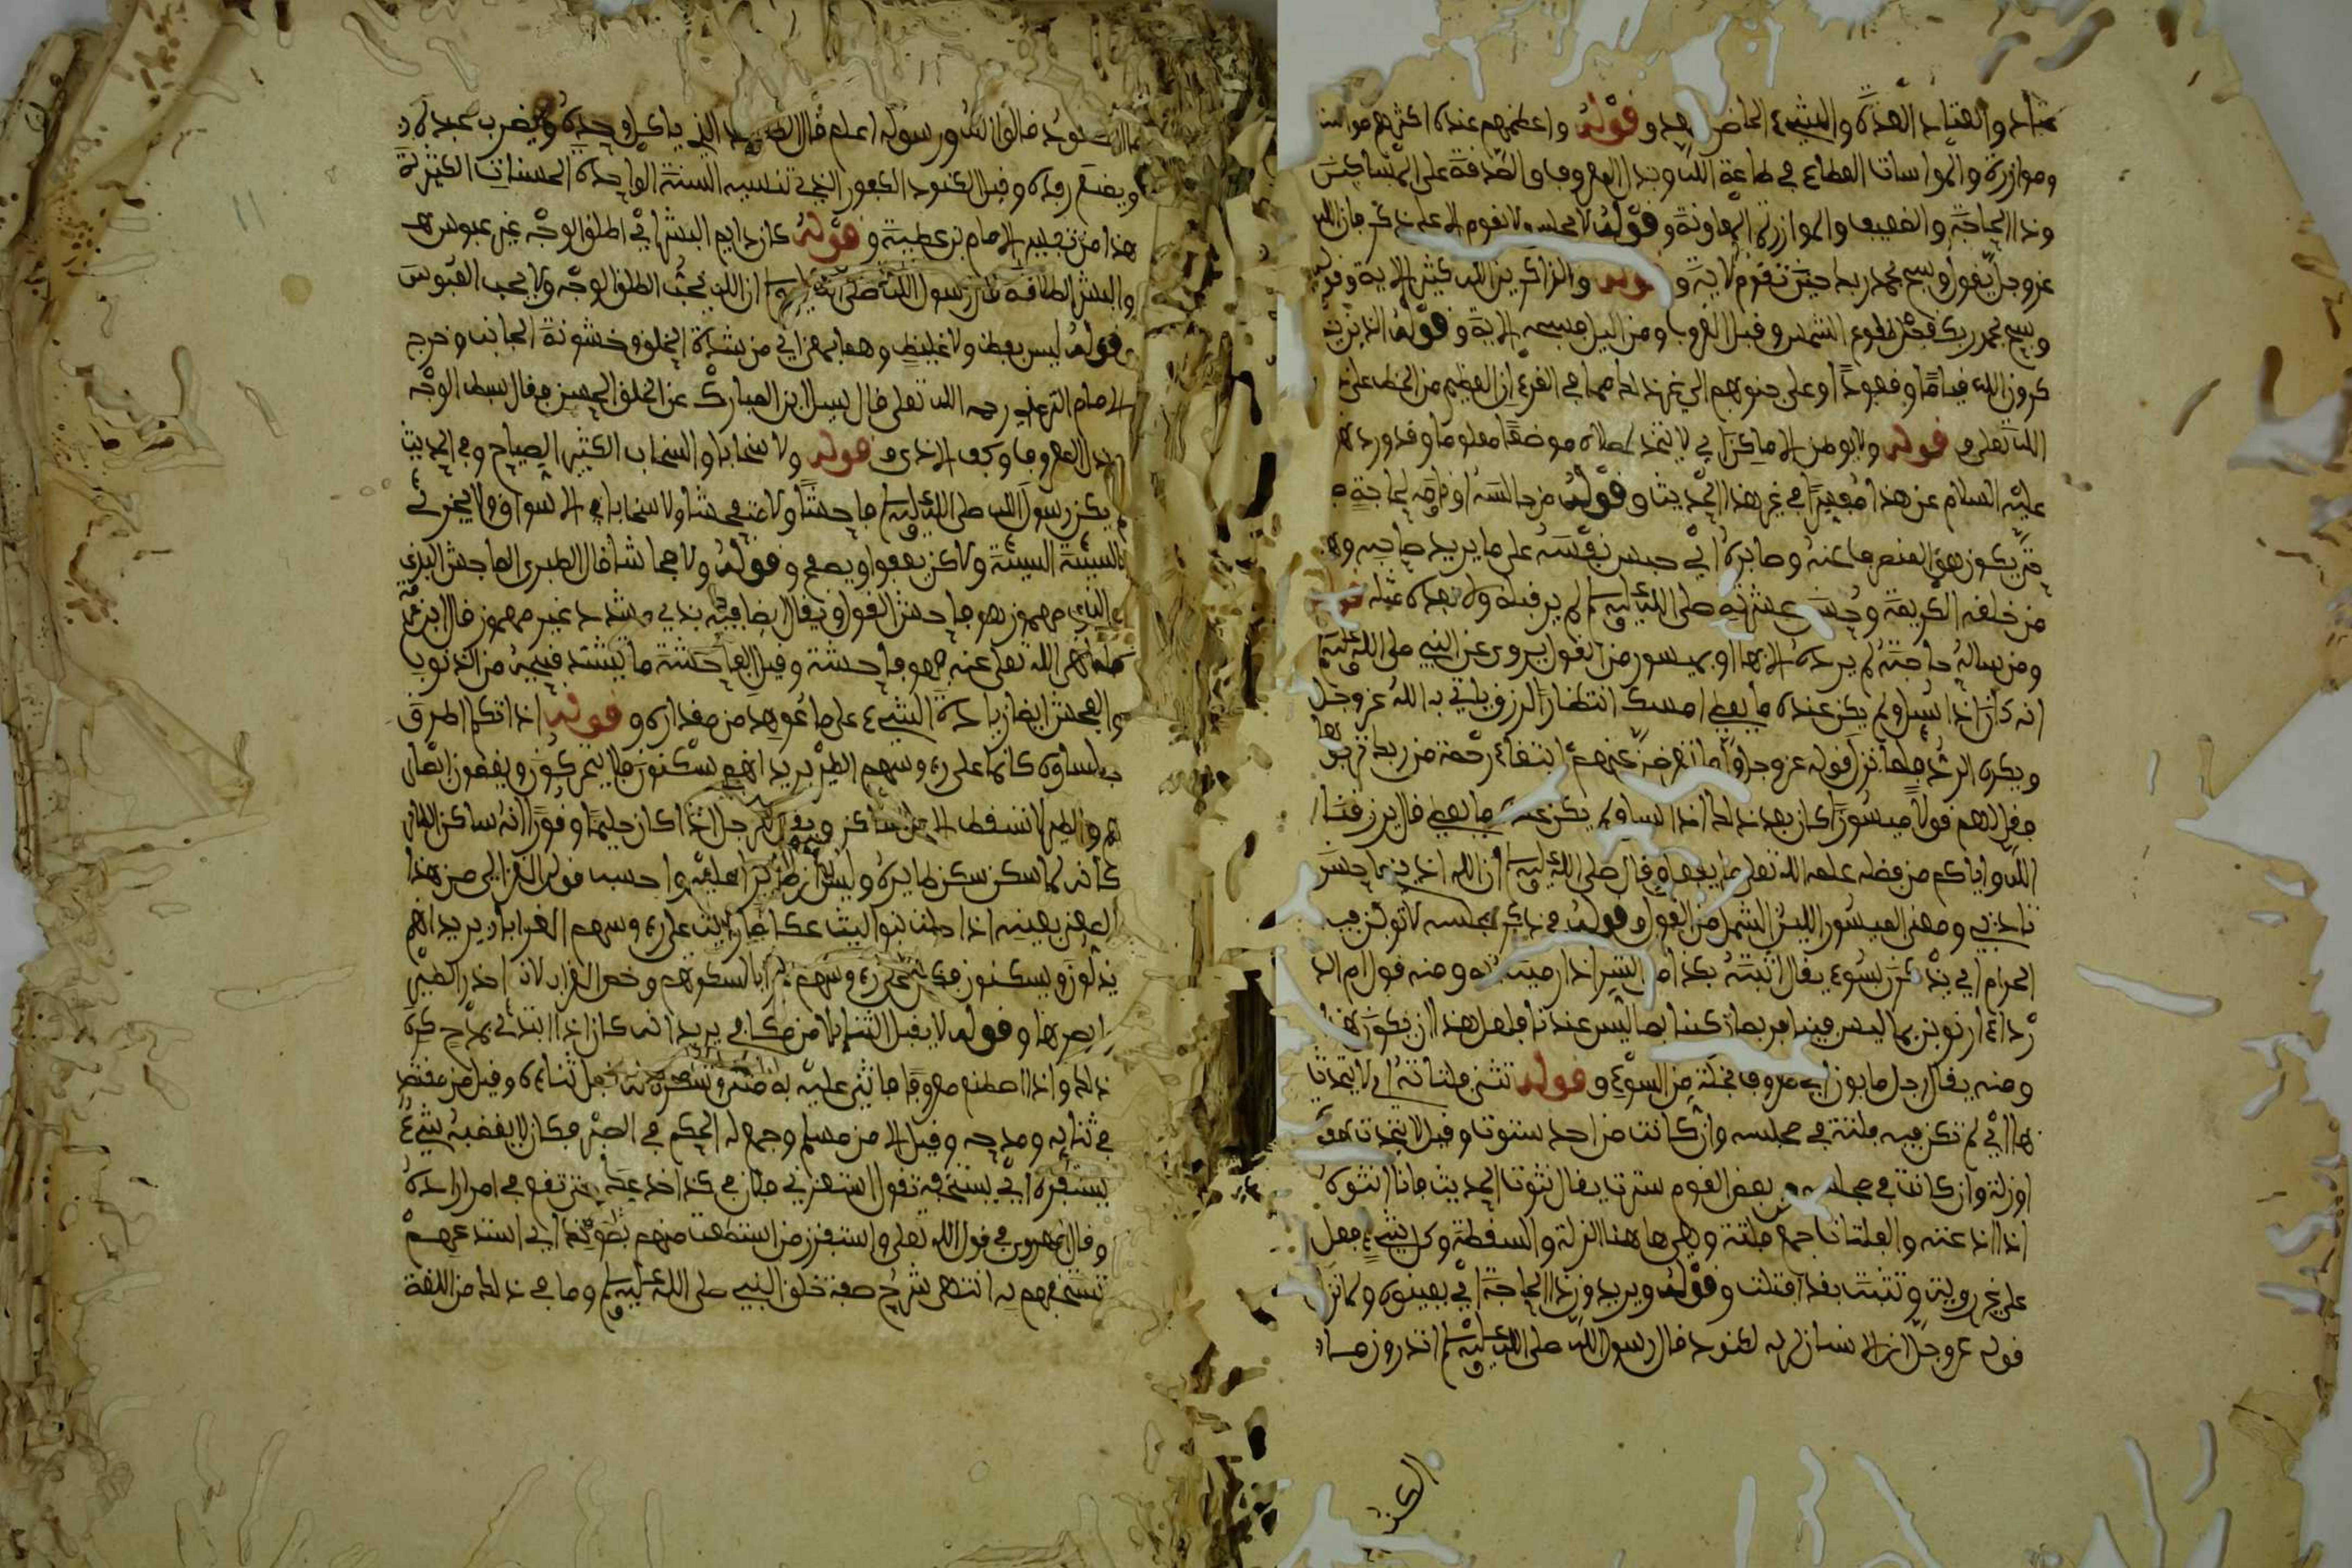 عتاد والعتاد العدة والشيء الحاضر المعد و قوله واعظمهم عنده اكثرهم مواسا
وموازرة والمواساة العطاء في طاعة الله وبذل المعروف والصدقة على المساكين
وذا الحاجة والضعيف والموازرة المعاونة و قوله لا يجلس ولا يقوم الا على ذكر فان الله
عز وجل يقول وسبح بحمد ربك حين تقوم الاية و قوله والذاكرين الله كثيرا الاية وقوله
وسبح بحمد ربك قبل طلوع الشمس وقبل الغروب ومن اليل فسبحه الاية و قوله الذين يذ
كرون الله قياما وقعودا وعلى جنوبهم الى غير ذلك مما في القرءان العظيم من الحض على
الله تعلى و قوله ولا يوطن الاماكن اي لا يتخذ لصلاه موضعا معلوما وقد ورد
عليه السلام عن هذا مفسرا في غير هذا الحديث و قوله من جالسه او قاومه لحاجة
حتى يكون هو المنصرف عنه وصابره اي حبس نفسه على ما يريد صاحبه وهو
من خلقه الكريمة وحسن عشرته صلى الله عليه وسلم لم ير قبله ولا بعده مثله قوله
ومن ساله حاجة لم يرده الا بها او بميسور من القول يروى عن النبي صلى الله عليه
انه كان اذا سيل ولم يكن عنده ما يعطي امسك انتظار الرزق ياتي به الله عز وجل
ويكره الرد فلما نزل قوله عز وجل واما تعرضن عنهم ابتغاء رحمة من ربك ترجوها
فقل لهم قولا ميسورا كان بعد ذلك اذا سيل ولم يكن عنده ما يعطي قال يرزقنا
الله واياكم من فضله
تاديبي ومعنى الميسور اللين السهل من القول و قوله في ذكر مجلسه لا توبن فيه
الحرم اي يذكرن بسوء يقال ابنته بكذا من الشر اذا رميته به ومنه قول ام الد
رداء ان نوبن بما ليس فينا فربما زكينا بما ليس عندنا فلعل هذا ان يكون بهذا
ومنه يقال رجل مابون اي معروف بخلة من السوء و قوله تنثى فلتاته اي لا يتحدث
بها اي لم تكن فيه فلتة في مجلسه وان كانت من احد سترت وقيل لا يتحدث بهفوة
او زلة وان كانت في مجلسه من بعض القوم سترت يقال نثوت الحديث فانا انثوه
اذا اذعته والفلتات جمع فلتة وهي هاهنا الزلة والسقطة وكل شيء فعل
على غير روية وتثبت فقد افتلت و قوله ويريدون ذا الحاجة اي يعينونه ولما نزل
قوله عز وجل ان الانسان لربه لكنود قال رسول الله صلى الله عليه وسلم اتدرون ما
الكنو
ما الكنود قالوا الله ورسوله اعلم قال الكنود الذي ياكل وحده ويضرب عبده
ويمنع رفده وقيل الكنود الكفور الذي تنسيه السيئة الواحدة الحسنات الكثيرة
هذا من تفسير الامام بن عطية و قوله كان دايم البشر اي طلق الوجه غير عبوس
والبشر الطلاقة قال رسول الله صلى الله عليه وسلم ان الله يحب الطلق الوجه ولا يحب العبوس
و قوله ليس بفظ ولا غليظ وهما بمعنى اي من شدة الخلق وخشونة الجانب وخرج
الامام الترمذي رحمه الله تعلى قال سيل ابن المبارك عن الخلق الحسن فقال بسط الوجه
وبذل المعروف وكف الاذى و قوله ولا سخابا والسخاب الكثير الصياح وفي الحديث
لم يكن رسول الله صلى الله عليه وسلم فاحشا ولا متفحشا ولا سخابا في الاسواق ولا يجزي
بالسيئة السيئة ولاكن يعفوا ويصفح و قوله ولا فحاشا قال الطبري الفاحش البذي
تعلى عنه هو فاحشة وقيل الفاحشة ما يشتد قبحه من الذنوب
والفحش ايضا زيادة الشيء على ما عوهد من مقداره و قوله اذا تكلم اطرق
جلساوه كانما على رءوسهم الطير يريد انهم يسكنون فلا يتحركون ويغضون ابصار
هم والطير لا تسقط الا على ساكن ويقال للرجل اذا كان حليما وقورا انه ساكن الطاير
كانه لما سكن سكن طايره
المعنى بعينه اذا حلت بنوا ليث عكاظا رايت على رءوسهم الغرابا يريد انهم
يذلون ويسكنون فكان على رءوسهم غرابا لسكونهم وخص الغراب لانه احذر الطير
وابصرها و قوله لا يقبل الثناء الا من مكافي يريد انه كان اذا ابتدئ بمدح كره
ذلك واذا اصطنع معروفا فاثنى عليه به مثن وشكره له قبل ثناءه وقيل من مقتصد
في ثنايه ومدحه وقيل الا من مسلم وجمع له الحكم في الصبر فكان لا يغضبه شيء
يستفزه اي يستخفه تقول استفزني فلان في كذا
وقال الهروي في قول الله تعلى واستفزز من استطعت منهم بصوتك اي استدعهم
تستخفهم به انتهى شرح صفة خلق النبي صلى الله عليه وسلم وما في ذلك من اللغة